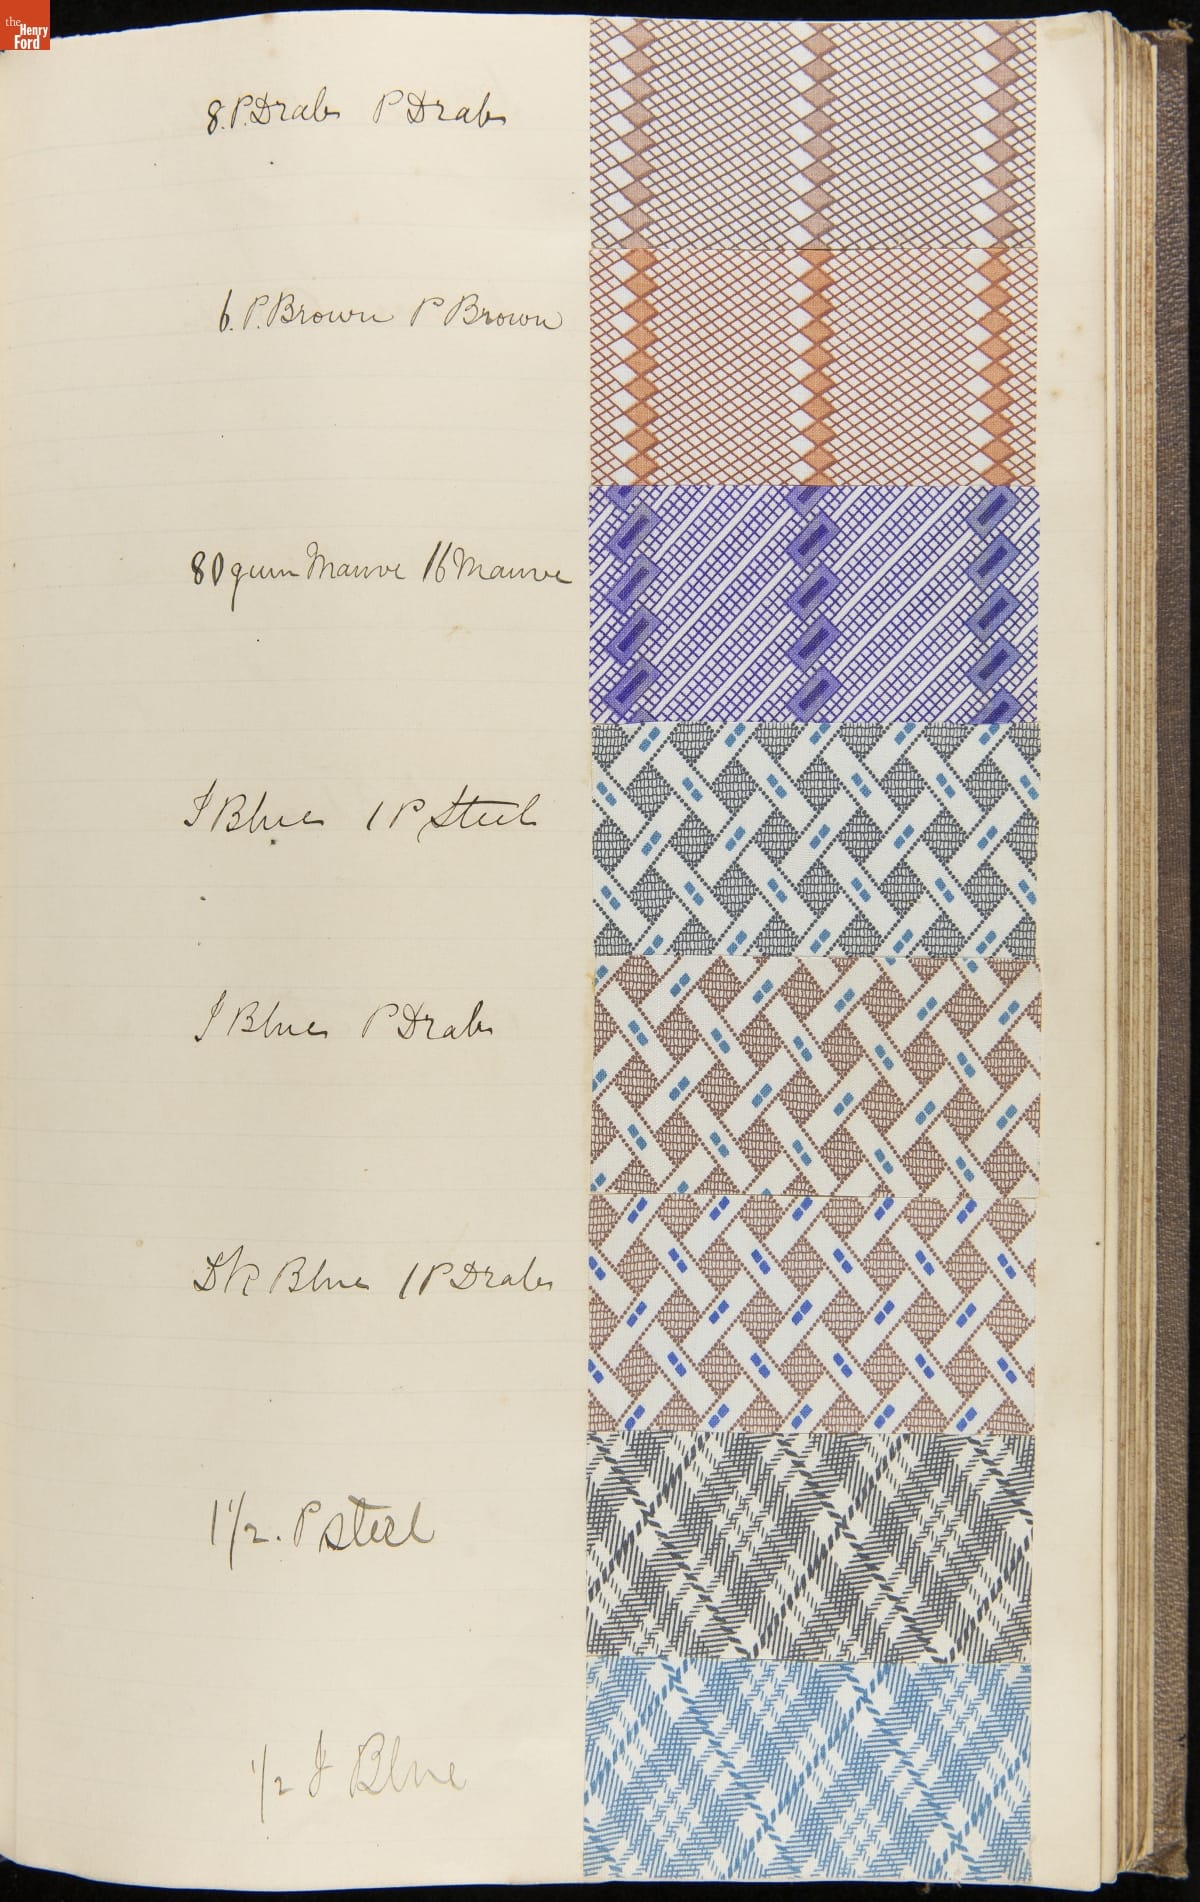 the
Henry
Ford
8. P. Drab P Drab
6. P. Brown P Brown
80 gum Mauve 16 Mauve
J Blue 1 P Steel
J Blue P Drab
DK Blue 1 P Drab
1 1/2. P Steel
1/2 J Blue